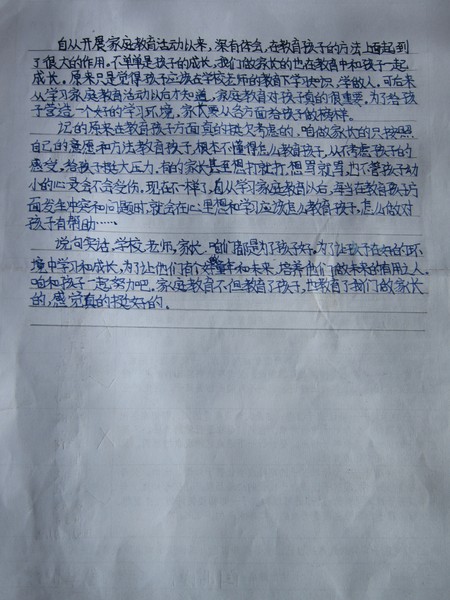 自从开展家庭教育活动以来，深有体会，在教育孩子的方法上面起到
了很大的作用。不单单是孩子的成长，我们做家长的也在教育中和孩子一起
成长。原来只是觉得孩子应该在学校老师的教育下学习知识，学做人。可后来
从学习家庭教育活动以后才知道，家庭教育对孩子真的很重要。为了给孩
子营造一个好的学习环境，家长要从各方面给孩子做榜样。
记的原来在教育孩子方面真的挺欠考虑的，咱做家长的只按照
自己的意愿和方法教育孩子，根本不懂得怎么教育孩子，从不考虑孩子的
感受，给孩子挺大压力。有的家长甚至想打就打，想骂就骂，也不管孩子幼
小的心灵会不会受伤，现在不一样了，自从学习家庭教育以后，每当在教育孩子方
面发生冲突和问题时，就会在心里想和学习应该怎么教育孩子，怎么做对
孩子有帮助……
说句实话，学校、老师、家长、咱们都是为了孩子好。为了让孩子在好的环
境中学习和成长，为了让他们有个好童年和未来，培养他们做未来的有用之人。
咱和孩子一起努力吧，家庭教育不但教育了孩子，也教育了我们做家长
的，感觉真的挺好的。